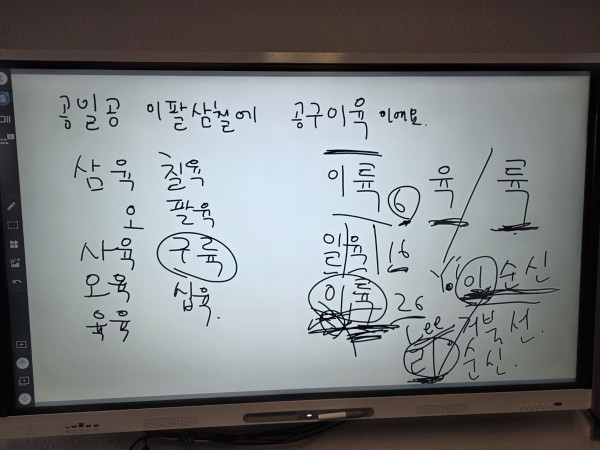 공일공 이팔삼칠에 공구이육 이에요.
삼육 칠육
오 팔육
사육 구륙
오육 십육.
육육
이륙 6 육 / 륙
일육 16
이륙 26
이순신
Lee 거북선.
리 순신.